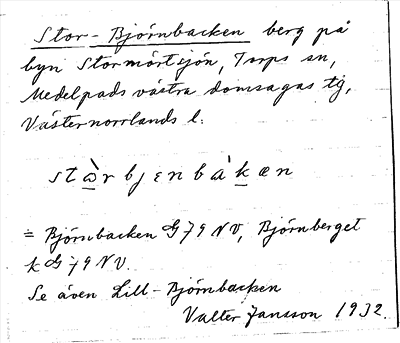 Stor-Björnbacken berg på
byn Stormörtsjön, Torps sn,
Medelpads västra domsagas tg,
Västernorrlands l.
stɷ̀rbjɛnbákæn
= Björnbacken G79 NV, Björnberget
k G79 NV.
Se även Lill-Björnbacken
Valter Jansson 1932.